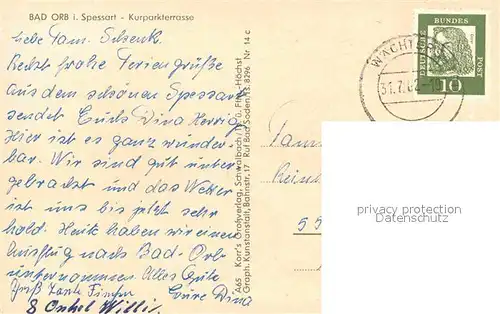 BAD ORB i. Spessart - Kurparkterrasse
Liebe Fam. Schenk.
Recht frohe Feriengrüße
aus dem schönen Spessart
sendet Euch Dina Herrig
Hier ist es ganz wunder
bar. Wir sind gut unter
gebracht und das Wetter
ist uns bis jetzt sehr
hold. Heute haben wir einen
Ausflug nach Bad-Orb
unternommen. Alles Gute
Gruß Tante Eure Dina
& Onkel Willi.
A65 Korr's Großverlag, Schwalbach/Ts. ü. Ffm.-Höchst
Graph. Kunstanstalt, Bahnstr. 17 Ruf Bad Soden/Ts. 8296 Nr. 14 c
WÄCHT
31.7.62
DEUTSCHE BUNDES POST
10
Fam
55
privacy protection
Datenschutz